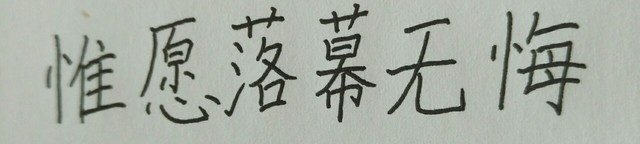 惟愿落幕无悔